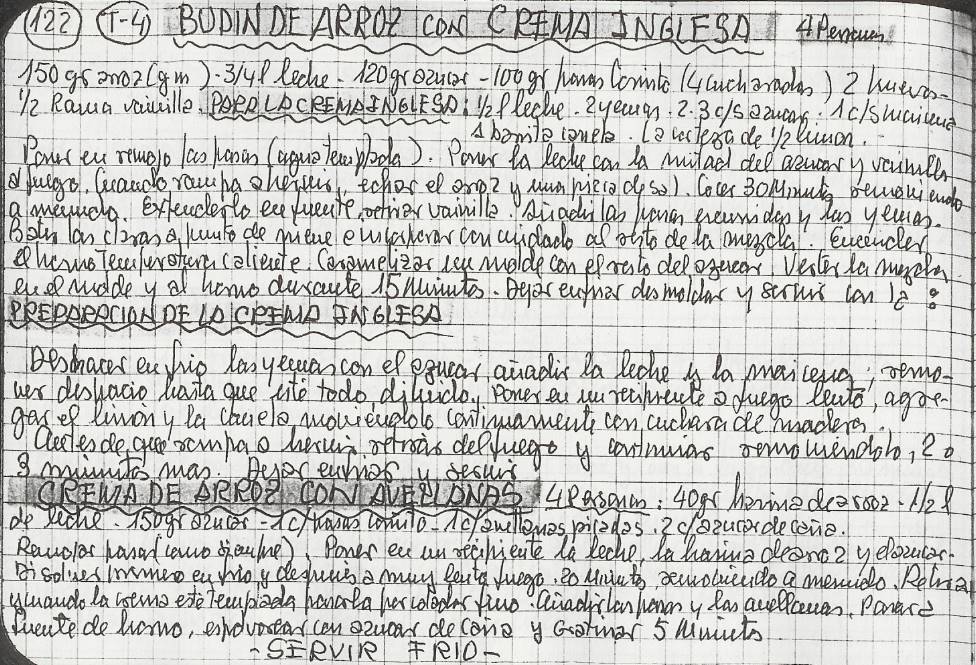 122 T-4 BUDIN DE ARROZ CON CREMA INGLESA 4 Personas
150 gr arroz (g m) · 3/4 l leche - 120 gr azucar - 100 gr pasas Corinto (4 cucharadas) 2 huevos -
1/2 Rama vainilla. PARA LA CREMA INGLESA: 1/2 l leche. 2 yemas. 2-3 c/s azucar · 1 c/s maicena
1 barrita canela. La corteza de 1/2 limon.
Poner en remojo las pasas (agua templada). Poner la leche con la mitad del azucar y vainilla
a fuego. Cuando rompa a hervir, echar el arroz y una pizca de sal. Cocer 30 Minutos removiendo
a menudo. Extenderlo en fuente, retirar vainilla. Añadir las pasas escurridas y las yemas.
Batir las claras a punto de nieve e incorporar con cuidado al resto de la mezcla. Encender
el horno temperatura caliente. Caramelizar un molde con el resto del azucar. Verter la mezcla
en el molde y al horno durante 15 Minutos. Dejar enfriar desmoldar y servir con la :
PREPARACION DE LA CREMA INGLESA
Deshacer en frio las yemas con el azucar, añadir la leche y la maicena; remo-
ver despacio hasta que esté todo diluido. Poner en un recipiente a fuego lento, agre-
gar el limon y la canela moviendolo continuamente con cuchara de madera.
Antes de que rompa a hervir retirar del fuego y continuar removiéndolo, 2 o
3 minutos mas. Dejar enfriar y servir
CREMA DE ARROZ CON AVELLANAS 4 Personas: 40 gr harina de arroz · 1/2 l
de leche - 150 gr azucar - 1 c/pasas corinto - 1 c/avellanas picadas. 2 c/azucar de caña.
Remojar pasas (como siempre). Poner en un recipiente la leche, la harina de arroz y el azucar.
Disolver primero en frio y después a muy lento fuego. 20 Minutos removiendo a menudo. Retirar
y cuando la crema esté templada pasarla por colador fino. Añadir las pasas y las avellanas. Pasar a
fuente de horno, espolvorear con azucar de caña y Gratinar 5 Minutos
- SERVIR FRIO -